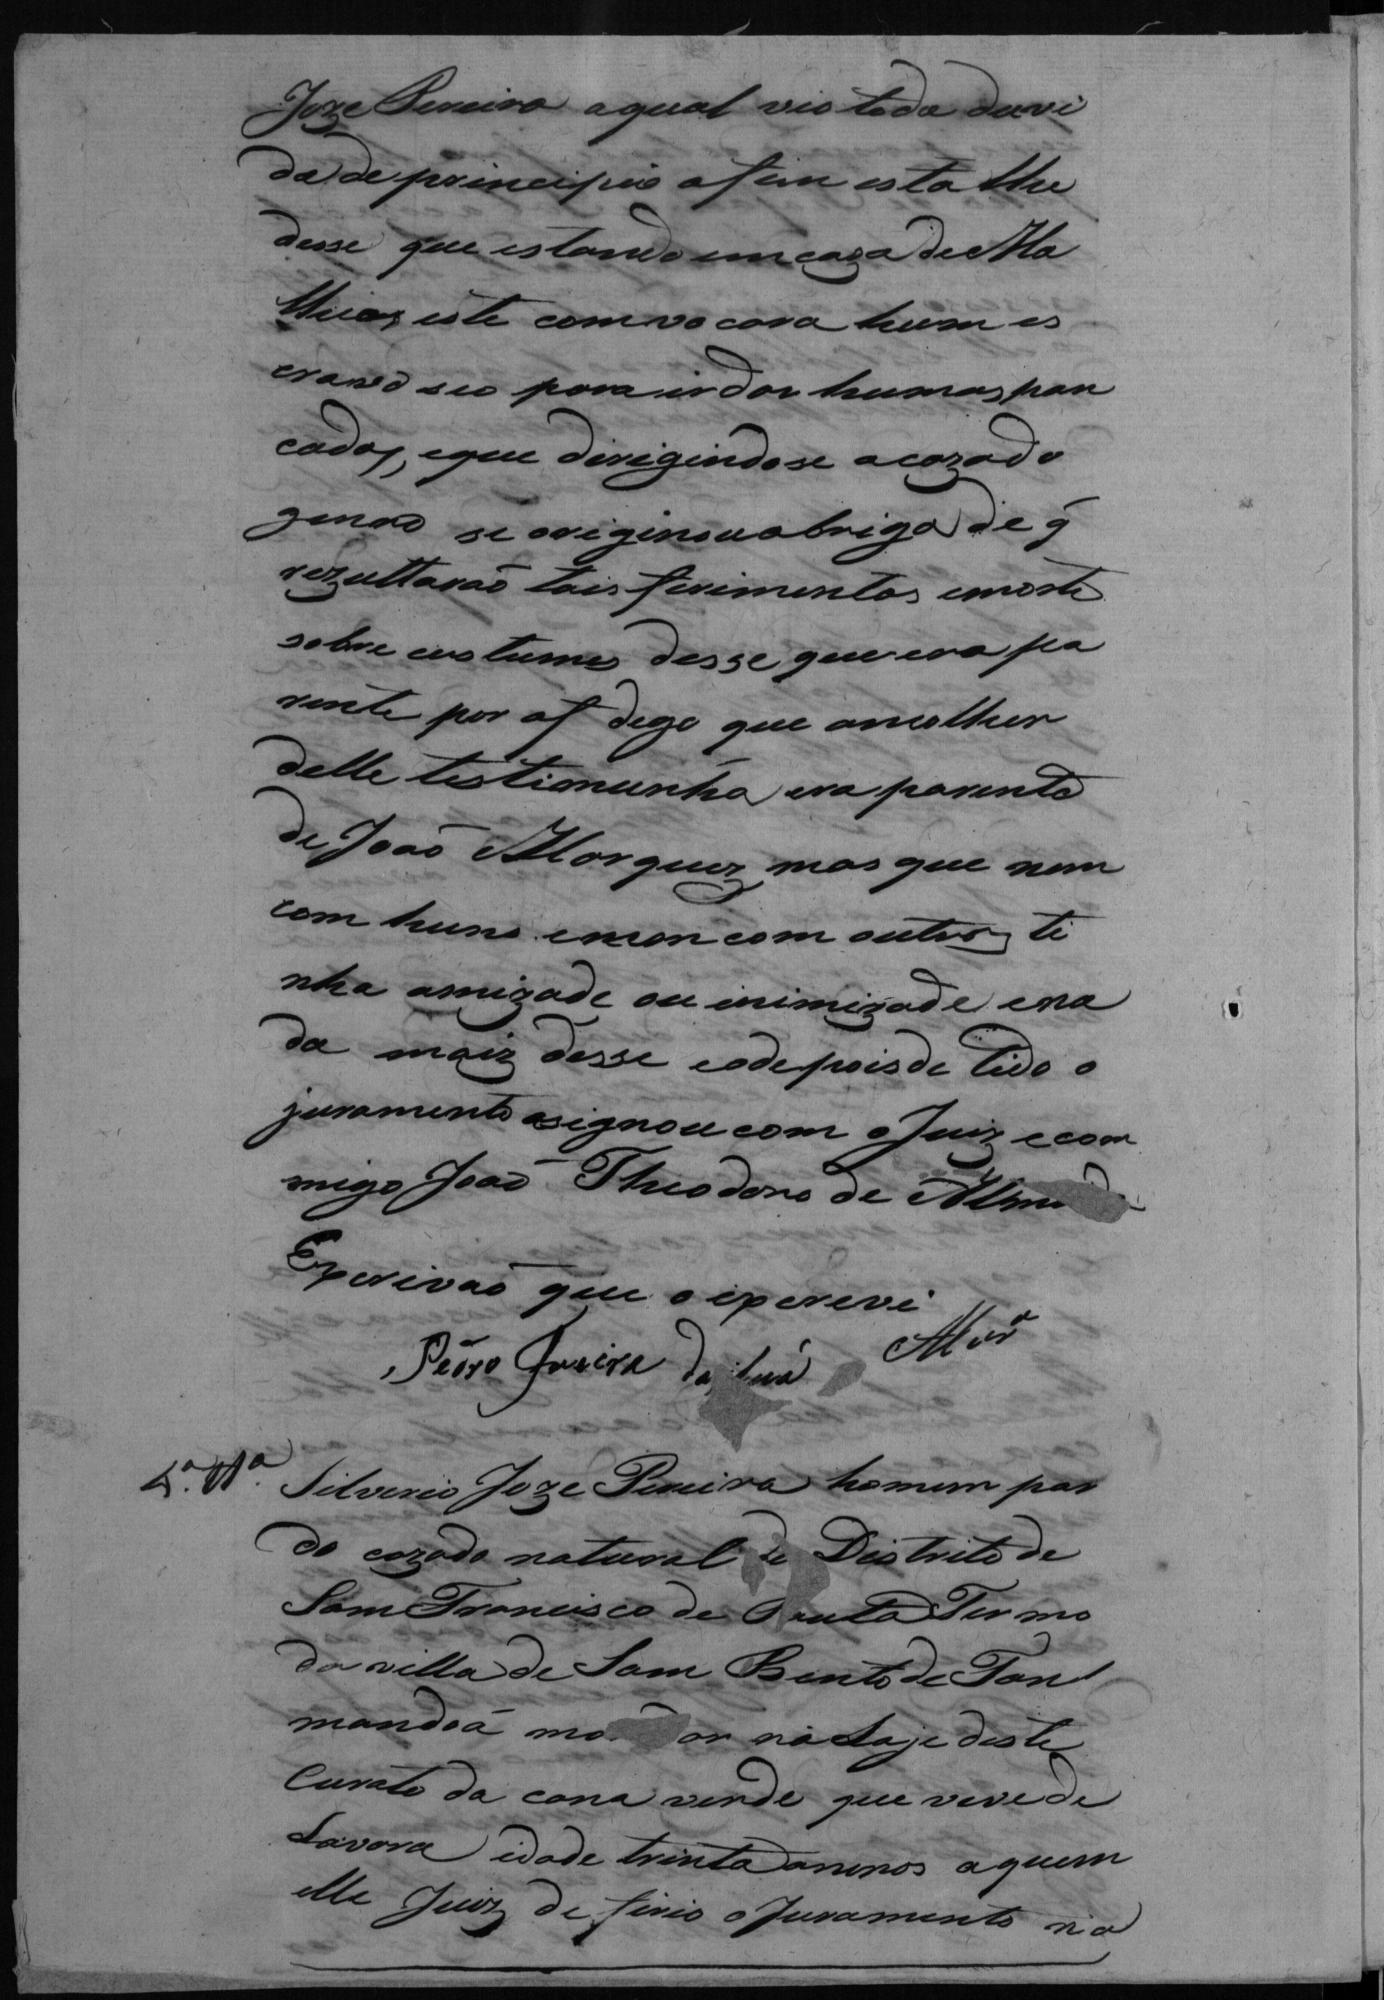 Joze Pereira aqual vio toda duvi
da de principio afim esta lhe
desse que estando em caza de Ma
thias este comvocara hum es
cravo seo para ir dar humas pan
cadas, eque dirigindose acazado
genro se originou abriga de q̃
rezultaraõ tais ferimentos emorte
sobre custumes desse que era pa
rente por af digo que amolher
delle testimunha era parenta
de Joaõ Marquez mas que nem
com huns emem com outros ti
nha amizade ou inimizade ena
da maiz desse edepois de lido o
juramento asignou com o Juiz ecom
migo Joaõ Theodoro de Alm
Expcrivaõ que o expcrevi
Pedro da
4.ª Tt.ª Silverio Joze Pereira homem par
do cazado natural do Distrito de
Sam Francisco de Paula Termo
da villa de Sam Bento de Tam
manduá morador na Laje deste
Curato da cana verde que vive de
Lavora idade trinta annos aquem
elle Juiz deferio o Juramento na